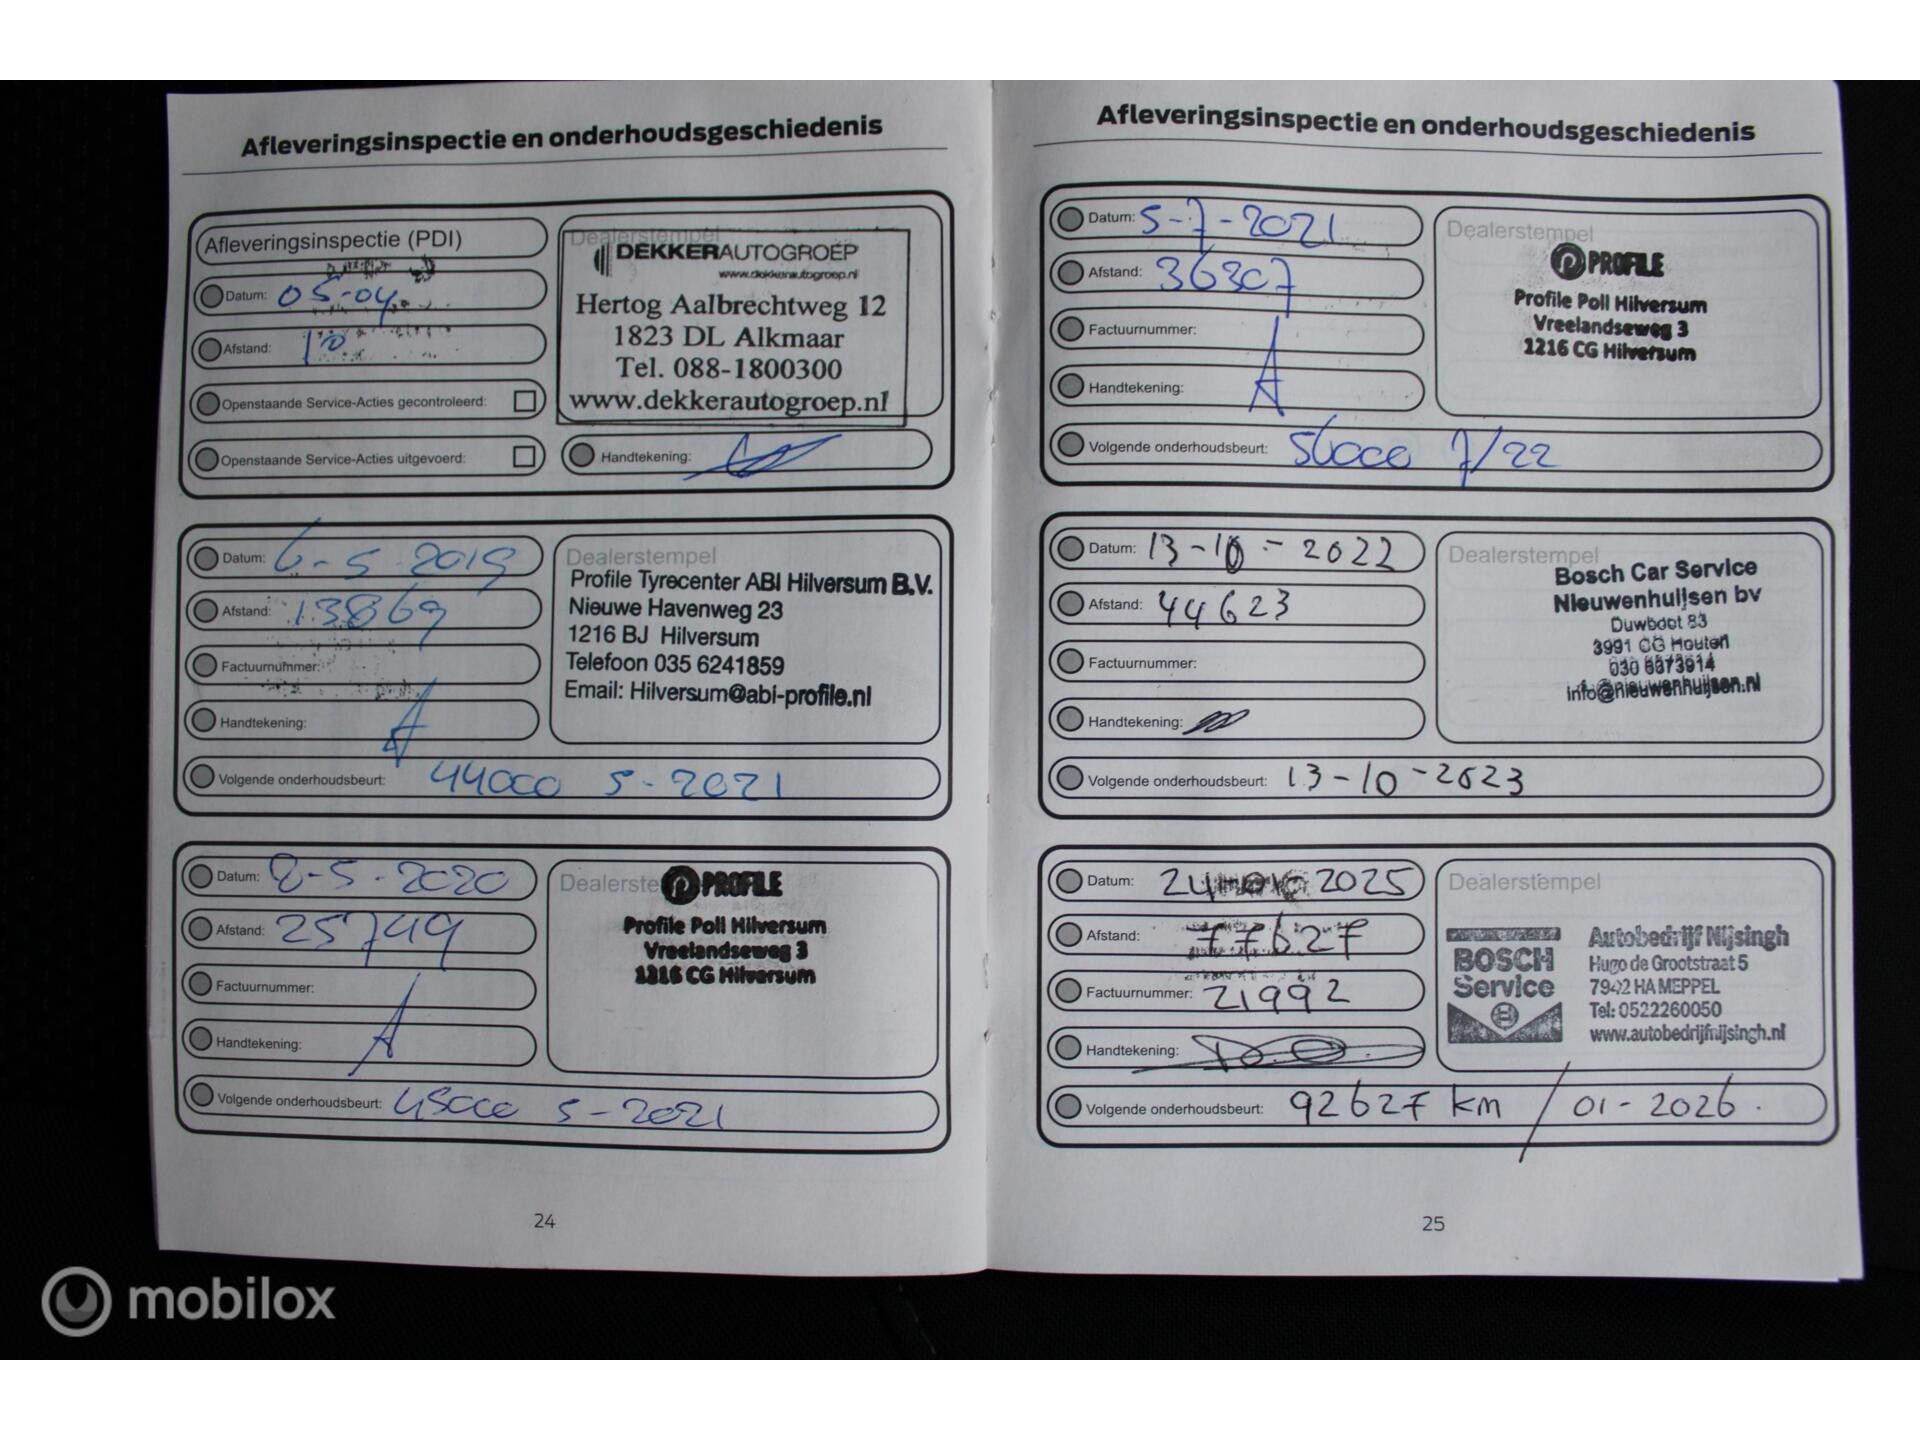 Afleveringsinspectie en onderhoudsgeschiedenis
Afleveringsinspectie (PDI)
Datum: 05-04
Afstand: 10
Openstaande Service-Acties gecontroleerd:
Openstaande Service-Acties uitgevoerd:
Dealerstempel
DEKKERAUTOGROEP
www.dekkerautogroep.nl
Hertog Aalbrechtweg 12
1823 DL Alkmaar
Tel. 088-1800300
www.dekkerautogroep.nl
Handtekening:
Datum: 6-5-2019
Afstand: 13869
Factuurnummer:
Handtekening:
Volgende onderhoudsbeurt: 44000 5-2021
Dealerstempel
Profile Tyrecenter ABI Hilversum B.V.
Nieuwe Havenweg 23
1216 BJ Hilversum
Telefoon 035 6241859
Email: Hilversum@abi-profile.nl
Datum: 8-5-2020
Afstand: 25749
Factuurnummer:
Handtekening:
Volgende onderhoudsbeurt: 45000 5-2021
Dealerste
PROFILE
Profile Poll Hilversum
Vreelandseweg 3
1216 CG Hilversum
24
Afleveringsinspectie en onderhoudsgeschiedenis
Datum: 5-7-2021
Afstand: 36307
Factuurnummer:
Handtekening:
Volgende onderhoudsbeurt: 56000 7/22
Dealerstempel
PROFILE
Profile Poll Hilversum
Vreelandseweg 3
1216 CG Hilversum
Datum: 13-10-2022
Afstand: 44623
Factuurnummer:
Handtekening:
Volgende onderhoudsbeurt: 13-10-2023
Dealerstempel
Bosch Car Service
Nieuwenhuijsen bv
Duwboot 83
3991 CG Houten
030 6373914
info@nieuwenhuijsen.nl
Datum: 24-01-2025
Afstand: 77627
Factuurnummer: 21992
Handtekening:
Volgende onderhoudsbeurt: 92627 km / 01-2026.
Dealerstempel
BOSCH
Service
Autobedrijf Nijsingh
Hugo de Grootstraat 5
7942 HA MEPPEL
Tel: 0522260050
www.autobedrijfnijsingh.nl
25
mobilox